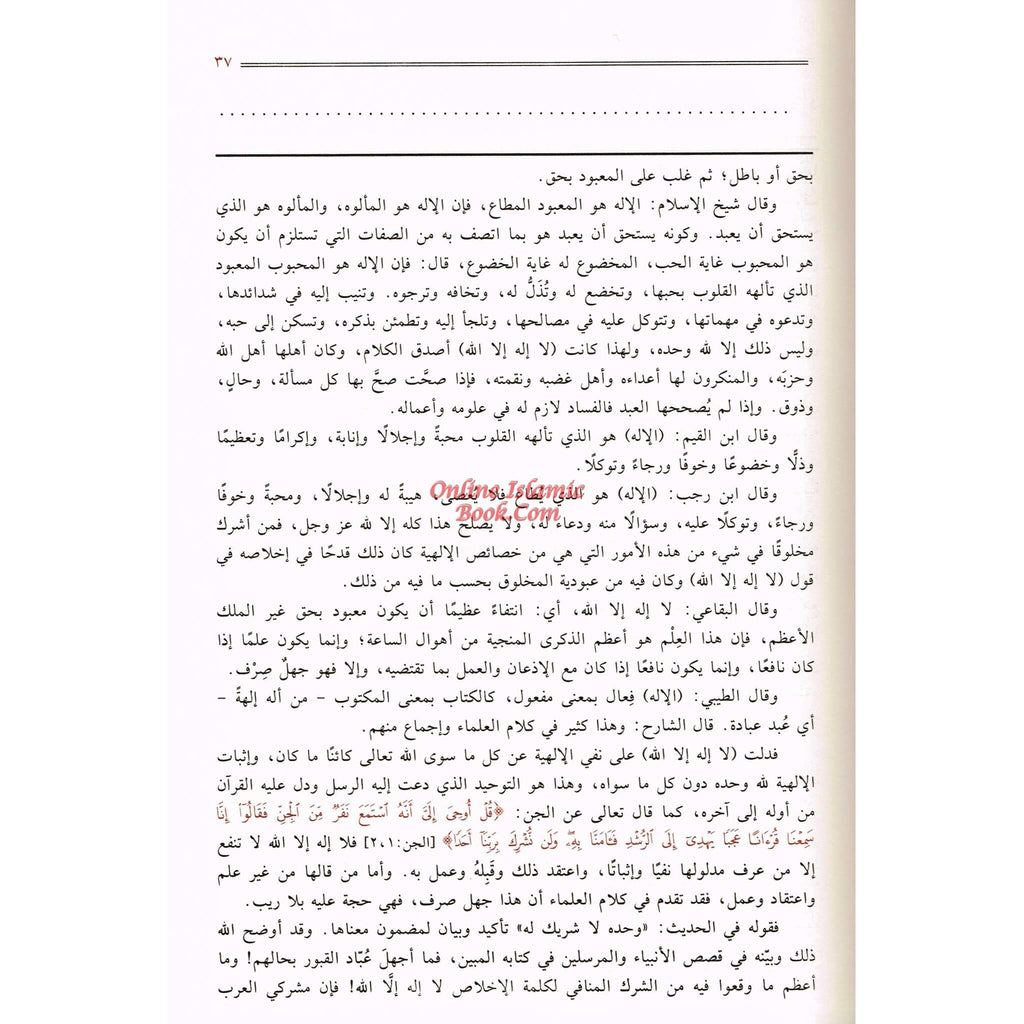 ٣٧
بحق أو باطل؛ ثم غلب على المعبود بحق.
وقال شيخ الإسلام: الإله هو المعبود المطاع، فإن الإله هو المألوه، والمألوه هو الذي
يستحق أن يعبد. وكونه يستحق أن يعبد هو بما اتصف به من الصفات التي تستلزم أن يكون
هو المحبوب غاية الحب، المخضوع له غاية الخضوع، قال: فإن الإله هو المحبوب المعبود
الذي تألهه القلوب بحبها، وتخضع له وتُذَلُّ له، وتخافه وترجوه. وتنيب إليه في شدائدها،
وتدعوه في مهماتها، وتتوكل عليه في مصالحها، وتلجأ إليه وتطمئن بذكره، وتسكن إلى حبه،
وليس ذلك إلا لله وحده، ولهذا كانت (لا إله إلا الله) أصدق الكلام، وكان أهلها أهل الله
وحزبَه، والمنكرون لها أعداءه وأهل غضبه ونقمته، فإذا صحَّت صحَّ بها كل مسألة، وحالٍ،
وذوق. وإذا لم يُصححها العبد فالفساد لازم له في علومه وأعماله.
وقال ابن القيم: (الإله) هو الذي تألهه القلوب محبةً وإجلالًا وإنابة، وإكرامًا وتعظيمًا
وذلًّا وخضوعًا وخوفًا ورجاءً وتوكلًا.
وقال ابن رجب: (الإله) هو الذي يُطاع فلا يُعصى، هيبةً له وإجلالًا، ومحبةً وخوفًا
Online Islamic
Book.Com
ورجاءً، وتوكلًا عليه، وسؤالًا منه ودعاء له، ولا يصلح هذا كله إلا لله عز وجل، فمن أشرك
مخلوقًا في شيء من هذه الأمور التي هي من خصائص الإلهية كان ذلك قدحًا في إخلاصه في
قول (لا إله إلا الله) وكان فيه من عبودية المخلوق بحسب ما فيه من ذلك.
وقال البقاعي: لا إله إلا الله، أي: انتفاءً عظيمًا أن يكون معبود بحق غير الملك
الأعظم، فإن هذا العِلْم هو أعظم الذكرى المنجية من أهوال الساعة؛ وإنما يكون علمًا إذا
كان نافعًا، وإنما يكون نافعًا إذا كان مع الإذعان والعمل بما تقتضيه، وإلا فهو جهلٌ صِرْف.
وقال الطيبي: (الإله) فِعال بمعنى مفعول، كالكتاب بمعنى المكتوب – من أله إلهةً –
أي عُبد عبادة. قال الشارح: وهذا كثير في كلام العلماء وإجماع منهم.
فدلت (لا إله إلا الله) على نفي الإلهية عن كل ما سوى الله تعالى كائنًا ما كان، وإثبات
الإلهية لله وحده دون كل ما سواه، وهذا هو التوحيد الذي دعت إليه الرسل ودل عليه القرآن
من أوله إلى آخره، كما قال تعالى عن الجن: ﴿قُلْ أُوحِىَ إِلَىَّ أَنَّهُ ٱسْتَمَعَ نَفَرٌ مِّنَ ٱلْجِنِّ فَقَالُوٓا۟ إِنَّا
سَمِعْنَا قُرْءَانًا عَجَبًا يَهْدِىٓ إِلَى ٱلرُّشْدِ فَـَٔامَنَّا بِهِۦ وَلَن نُّشْرِكَ بِرَبِّنَآ أَحَدًا﴾ [الجن:٢،١] فلا إله إلا الله لا تنفع
إلا من عرف مدلولها نفيًا وإثباتًا، واعتقد ذلك وقَبِلهُ وعمل به. وأما من قالها من غير علم
واعتقاد وعمل، فقد تقدم في كلام العلماء أن هذا جهل صرف، فهي حجة عليه بلا ريب.
فقوله في الحديث: «وحده لا شريك له» تأكيد وبيان لمضمون معناها. وقد أوضح الله
ذلك وبيّنه في قصص الأنبياء والمرسلين في كتابه المبين، فما أجهلَ عُبّاد القبور بحالهم! وما
أعظم ما وقعوا فيه من الشرك المنافي لكلمة الإخلاص لا إله إلَّا الله! فإن مشركي العرب